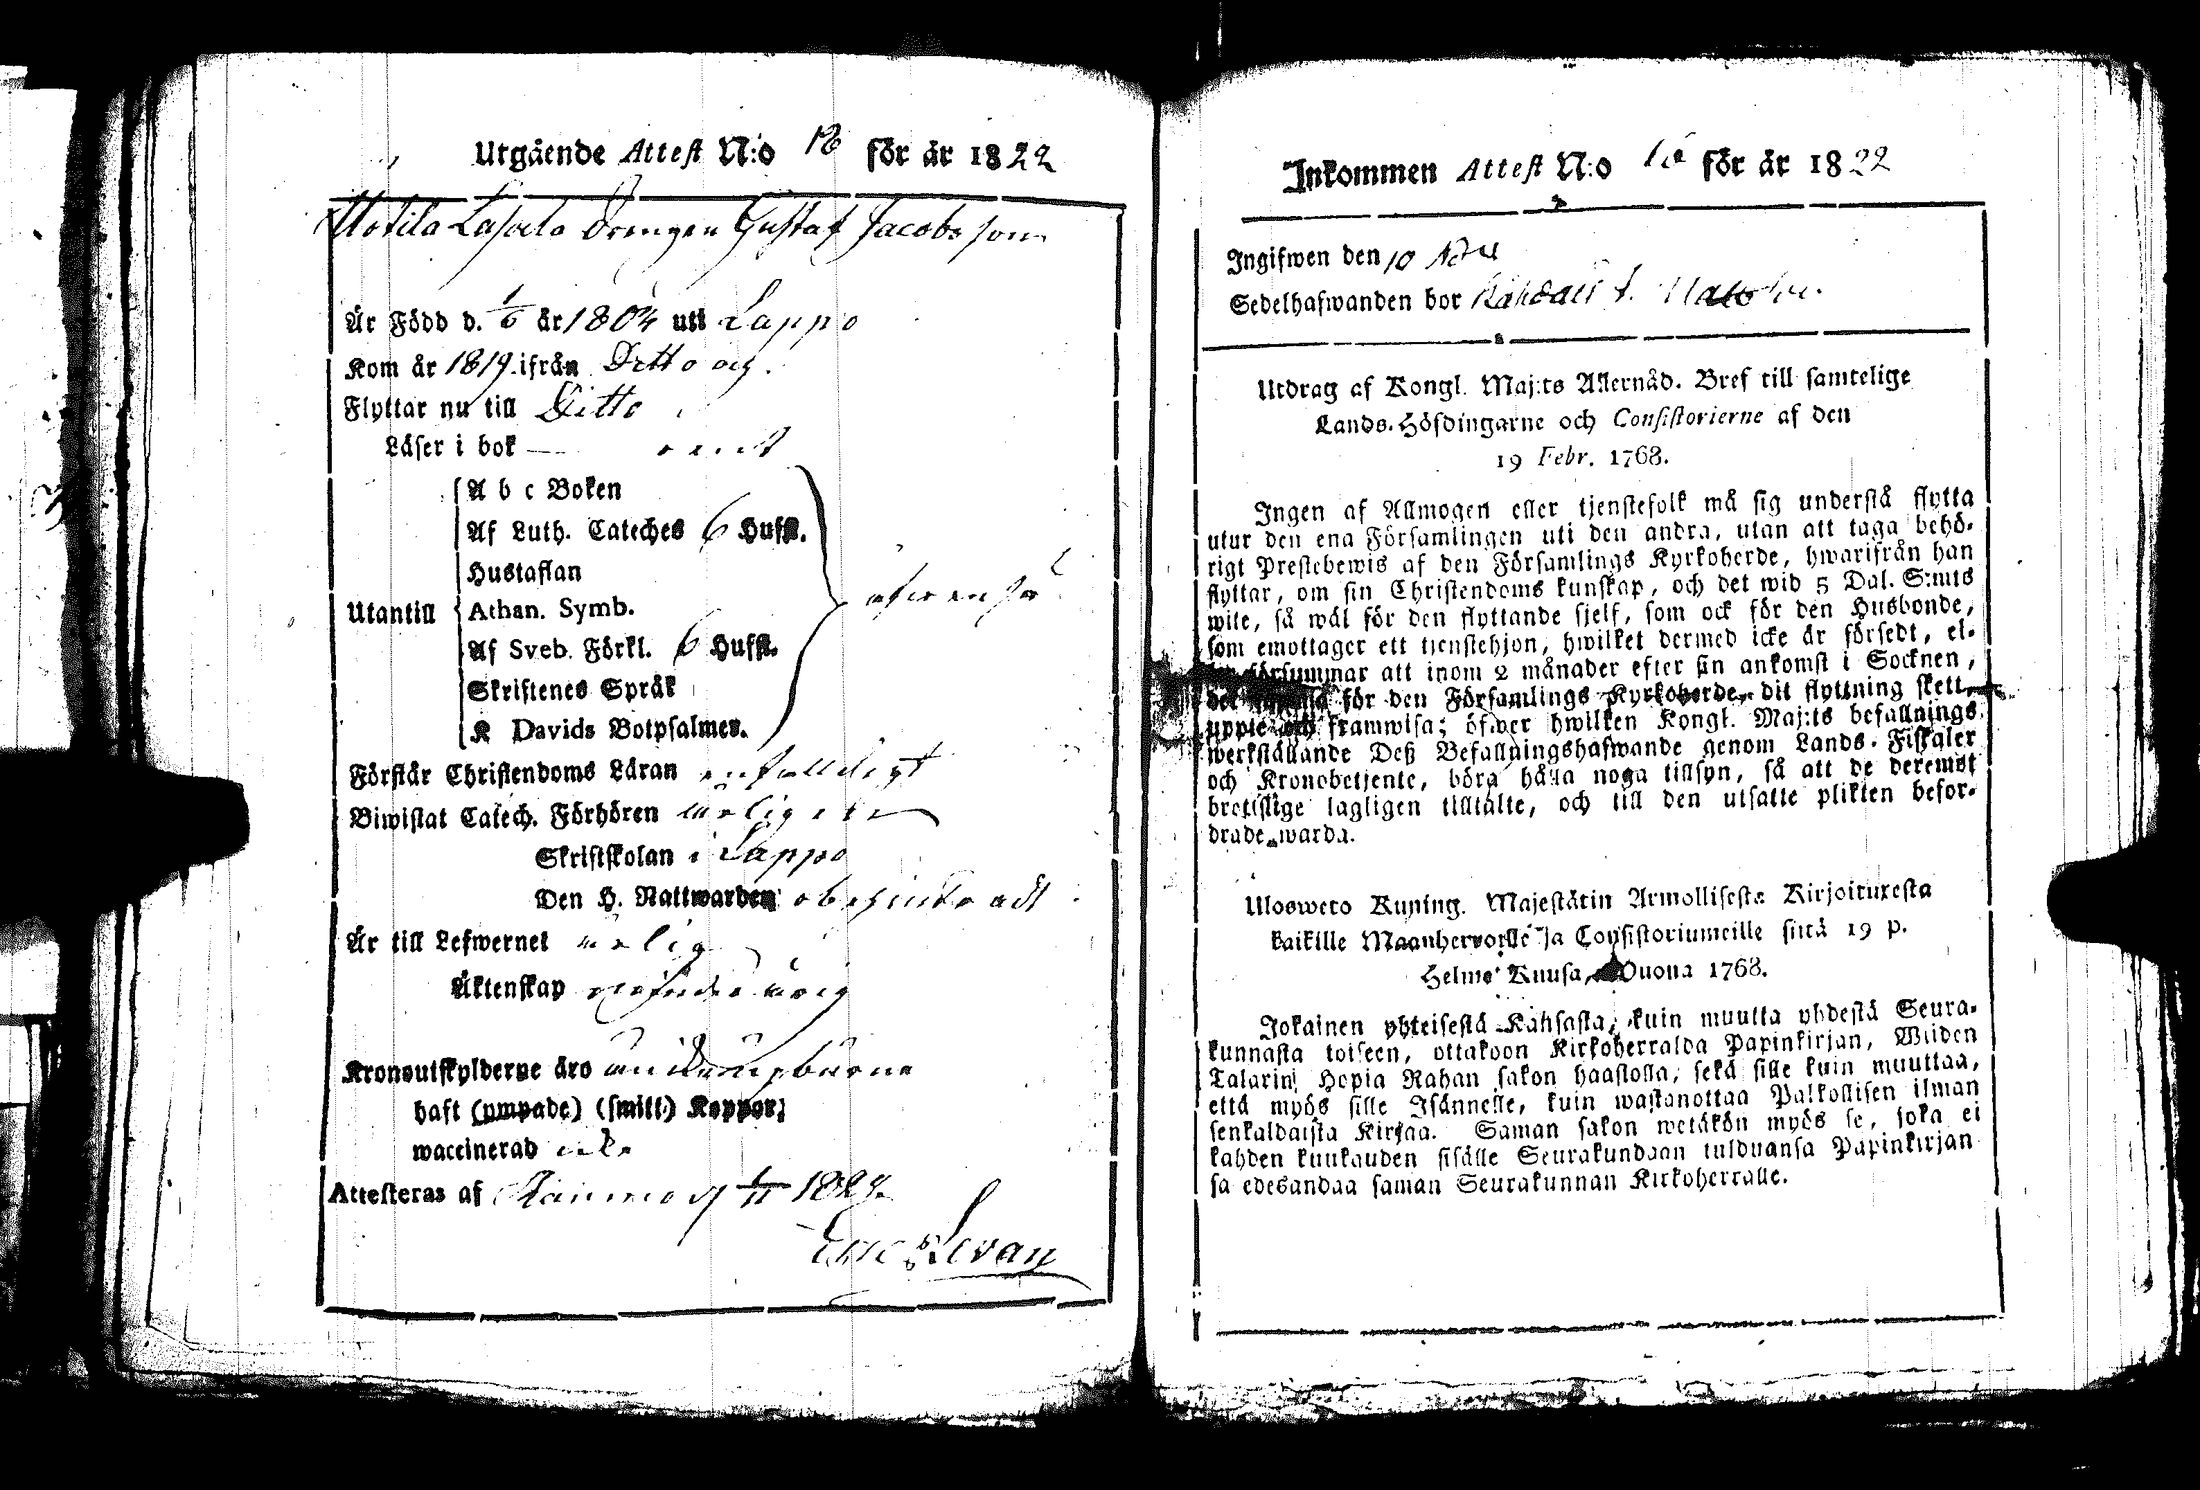 Utgående Attest N:o 18 för år 1822
Lassila Drengen Gustaf Jacobsson
Är Född d. 1/6 år 1804 uti Lappo
Kom år 1819 ifrån Ditto
Flyttar nu till Ditto
Läser i bok —
A b c Boken
Af Luth. Cateches 6 Hufst.
Hustaflan
Utantill Athan. Symb.
Af Sveb. Förkl. 6 Hufst.
Skriftenes Språk
K Davids Botpsalmer.
äfvenså
Förstår Christendoms Läran enfaldigt
Biwistat Catech. Förhören årligen
Skriftskolan i Lappo
Den H. Nattwarden obehindradt
Är till Lefwernet ärlig
Äktenskap
Kronoutskylderne äro
haft (ympade) (smitt.) Koppor;
waccinerad icke
Attesteras af 1/11 1822.
Eric Levan
Inkommen Attest N:o för år 1822
Ingifwen den 10
Sedelhafwanden bor
Utdrag af Kongl. Maj:ts Allernåd. Bref till samtelige
Lands-Höfdingarne och Consistorierne af den
19 Febr. 1768.
Ingen af Allmogen eller tjenstefolk må sig understå flytta
utur den ena Församlingen uti den andra, utan att taga behö-
rigt Prestebewis af den Församlings Kyrkoherde, hwarifrån han
flyttar, om sin Christendoms kunskap, och det wid 5 Dal. S:mts
wite, så wäl för den flyttande sjelf, som ock för den Husbonde,
som emottager ett tjenstehjon, hwilket dermed icke är försedt, el-
försummar att inom 2 månader efter sin ankomst i Socknen,
det för den Församlings Kyrkoherde, dit flyttning skett,
uppte och framwisa; öfwer hwilken Kongl. Maj:ts befallnings
werkställande Deß Befallningshafwande genom Lands-Fiskaler
och Kronobetjente, böra hålla noga tillsyn, så att de deremot
brottslige lagligen tilltalte, och till den utsatte plikten befor-
drade warda.
Ulosweto Kuning. Majestätin Armollisesta Kirjoituxesta
kaikille Maanherroille ja Consistoriumeille siitä 19 p.
Helme Kuusa, Wuona 1768.
Jokainen yhteisestä Kansasta, kuin muutta yhdestä Seura-
kunnasta toiseen, ottakoon Kirkoherralda Papinkirjan, Wiiden
Talarin Hopia Rahan sakon haastolla, sekä sille kuin muuttaa,
että myös sille Isännelle, kuin wastanottaa Palkollisen ilman
senkaldaista Kirjaa. Saman sakon wetäkön myös se, joka ei
kahden kuukauden sisälle Seurakundaan tulduansa Papinkirjan
sa edesandaa saman Seurakunnan Kirkoherralle.